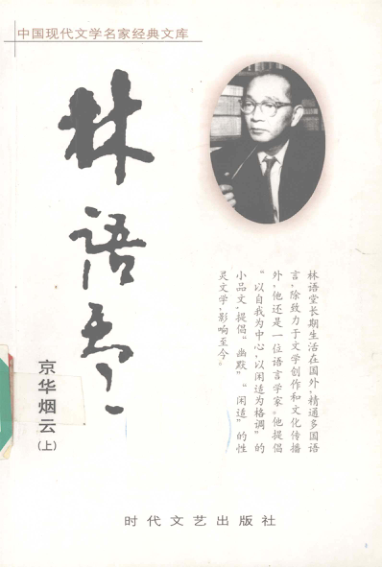 中国现代文学名家经典文库
林语堂
京华烟云
(上)
林语堂长期生活在国外,精通多国语
言,除致力于文学创作和文化传播
外,他还是一位语言学家。他提倡
“以自我为中心,以闲适为格调”的
小品文,提倡“幽默”“闲适”的性
灵文学,影响至今。
时代文艺出版社